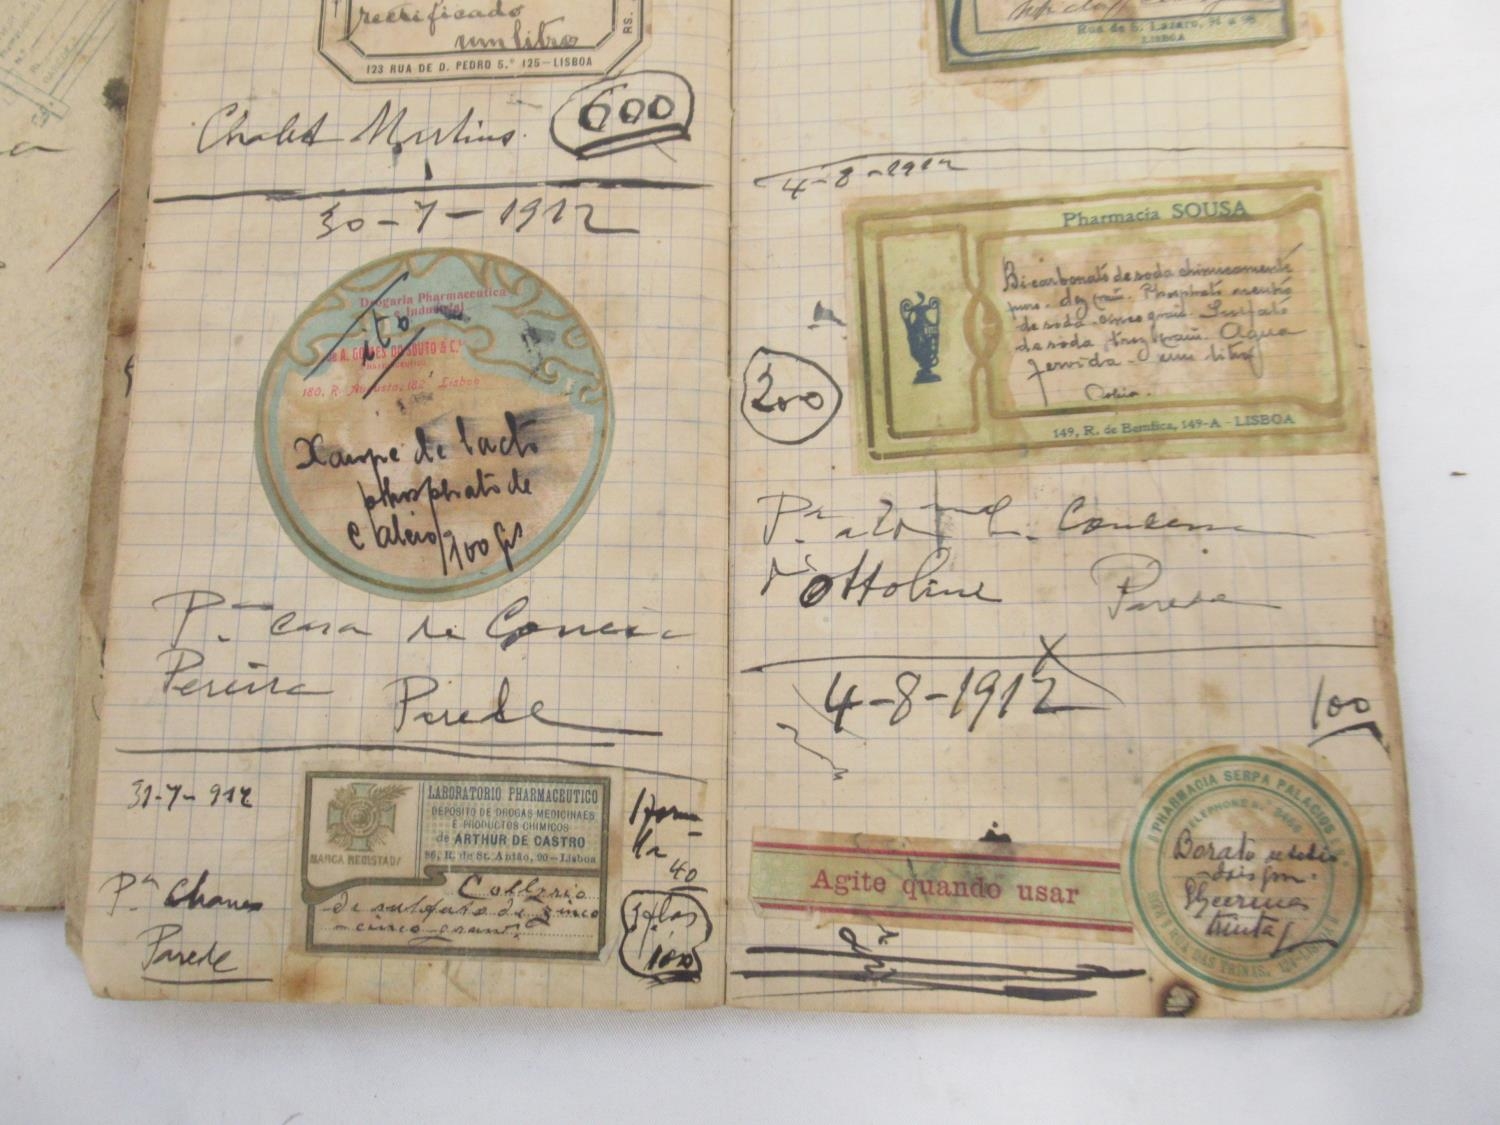 rectificado
um litro
RS.
123 RUA DE D. PEDRO 5.º 125-LISBOA
Chalet Martins.
600
30-7-1912
Drogaria Pharmaceutica
e Industrial
de A. GOMES DO SOUTO & C.ª
180, R. Augusta, 182, Lisboa
ito
Xarope de lacto
phosphato de
Calcio/100 Gs
Pª casa de
Pereira Parede
31-7-912
Pª Chaves
Parede
MARCA REGISTADA
LABORATORIO PHARMACEUTICO
DEPOSITO DE DROGAS MEDICINAES
E PRODUCTOS CHIMICOS
de ARTHUR DE CASTRO
86, R. de St. Antão, 90-Lisboa
Collyrio
de sulfato de zinco
cinco grams
40
100
Rua de S. Lazaro, 94 a 98
LISBOA
4-8-1912
Pharmacia SOUSA
Bicarbonato de soda chimicamente
puro. dez grm. Phosphato neutro
de soda cinco grm. Sulfato
de soda trez grm. Agua
fervida - um litro
149, R. de Bemfica, 149-A - LISBOA
200
Ottoline Parede
4-8-1912
100
Agite quando usar
PHARMACIA SERPA PALACIOS
TELEPHONE N.º
Borato de sodio
dois grm.
Glycerina
trinta
RUA DAS TRINAS, LISBOA